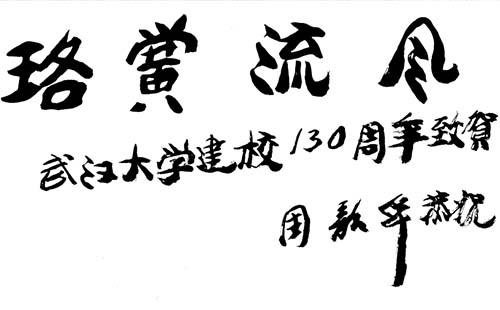 珞黉流风
武汉大学建校130周年致賀
周 年恭祝